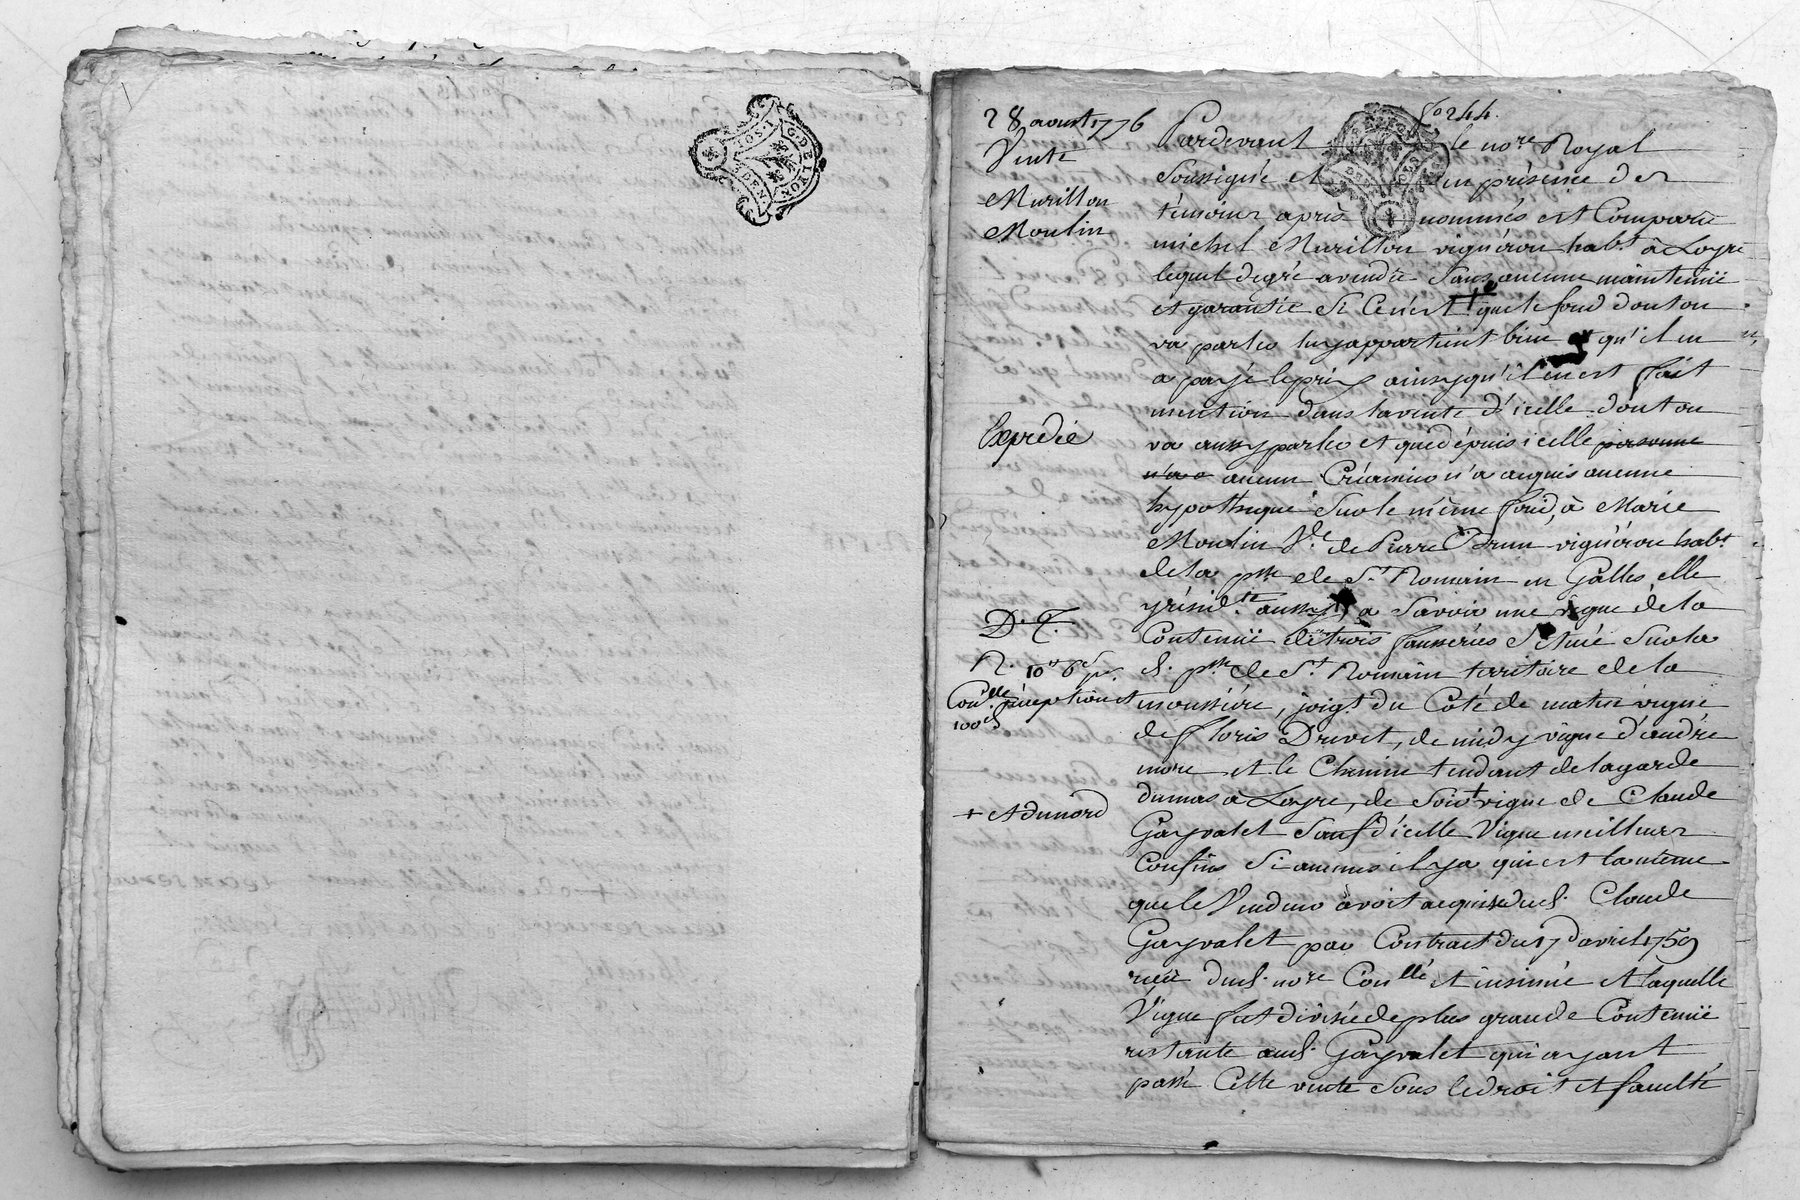 G. DE LYON
fo 244.
28 aoust 1776
Vente
Murillon
Moulin
Expedié
D. T.
R. 10lt 6s
Conlle réception et
100s
+ et du nord
Pardevant le nore Royal
Soussigné et en présence des
témoins après nommés est Comparu
michel Murillon vignéron habt à Loyre
lequel de gré a vendu Sans aucune maintenüe
et garantie Si Ce n'est + que le fond dont on
va parler luy appartient bien qu'il en
a payé le prix ainsy qu'il en est fait
mention dans la vente d'icelle dont on
va aussy parler et que dépuis icelle personne
n'a aucun Créancier n'a acquis aucune
hypothéque Sur le même fond, à Marie
Moulin Ve de Pierre Brun vignéron habt
de la psse de St Romain en Galles elle
y résidte aussy, a Savoir une vigne de la
Contenüe de trois fosserées Scitué Sur la
d. psse de St Romain territoire de la
moussiére, joigt du Coté de matin vigne
de floris Drevet, de midy vigne d'andré
more et le Chemin tendant de la garde
dumas à Loyre, de Soir + vigne de Claude
Gayvalet Sauf d'icelle Vigne meilleurs
Confins Si aucuns il y a qui est la même
que le Vendeur avoit acquise dud. Claude
Gayvalet par Contract du 17 avril 1759
reçu dud. nore Conllé et insinué et laquelle
Vigne fut divisée de plus grande Contenüe
restante aud. Gayvalet qui ayant
passé Cette vente Sous le droit et faculté